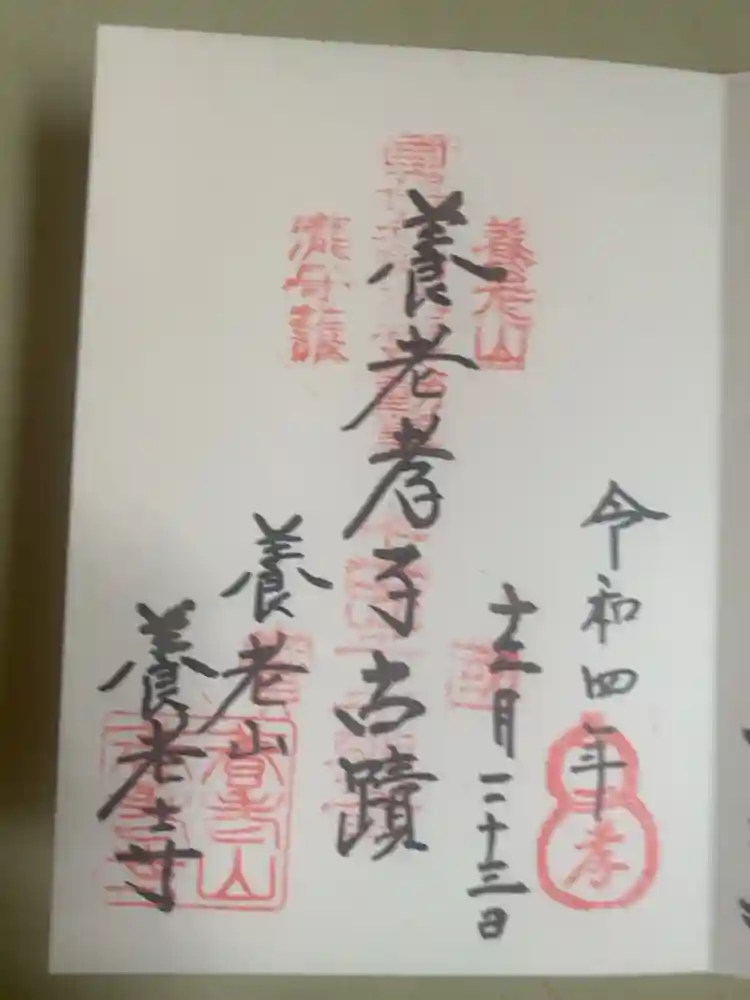 令和四年
十二月二十三日
養老山
養老孝子古蹟
養老山
養老寺
孝